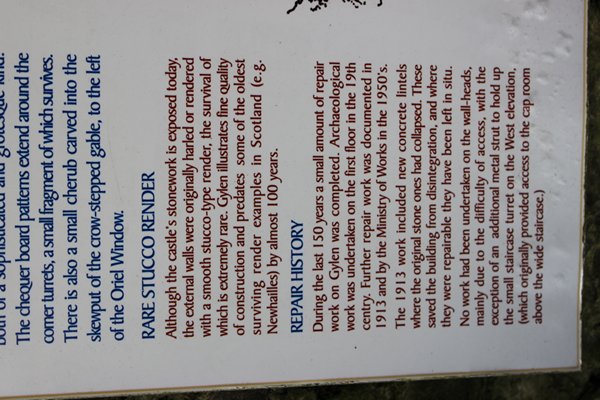 both of a sophisticated and grotesque kind.
The chequer board patterns extend around the
corner turrets, a small fragment of which survives.
There is also a small cherub carved into the
skewput of the crow-stepped gable, to the left
of the Oriel Window.
RARE STUCCO RENDER
Although the castle's stonework is exposed today,
the external walls were originally harled or rendered
with a smooth stucco-type render, the survival of
which is extremely rare. Gylen illustrates fine quality
of construction and predates some of the oldest
surviving render examples in Scotland (e.g.
Newhailles) by almost 100 years.
REPAIR HISTORY
During the last 150 years a small amount of repair
work on Gylen was completed. Archaeological
work was undertaken on the first floor in the 19th
centry. Further repair work was documented in
1913 and by the Ministry of Works in the 1950's.
The 1913 work included new concrete lintels
where the original stone ones had collapsed. These
saved the building from disintegration, and where
they were repairable they have been left in situ.
No work had been undertaken on the wall-heads,
mainly due to the difficulty of access, with the
exception of an additional metal strut to hold up
the small staircase turret on the West elevation,
(which originally provided access to the cap room
above the wide staircase.)